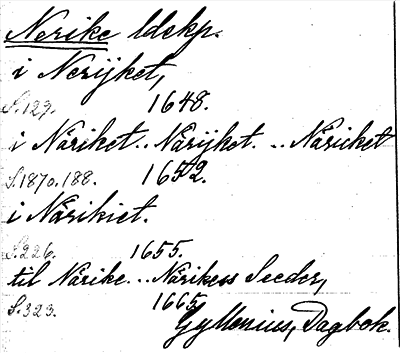 Nerike ldskp.
i Nerijket,
S.123. 1648.
i Näriket.. Närijket. .. Näricket
S.187o,188. 1652.
i Närikiet.
S.226. 1655.
til Närike... Närikess Seeder,
S.323. 1665.
Gyllenius, Dagbok.